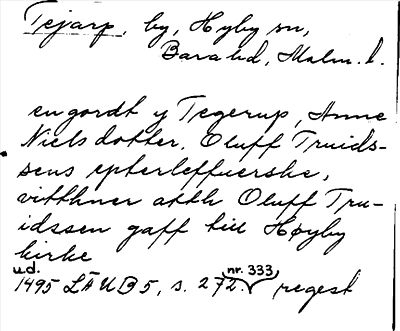 Tejarp, by, Hyby sn,
Bara hd, Malm. l.
en gordt y Tegerup, Anne
Niels dotter, Oluff Truids-
sens epterleffuerske,
vitthner atth Oluff Tru-
idssen gaff till Høyby
kirke
u.d. nr. 333
1495 LÄUB 5, s. 272. regest